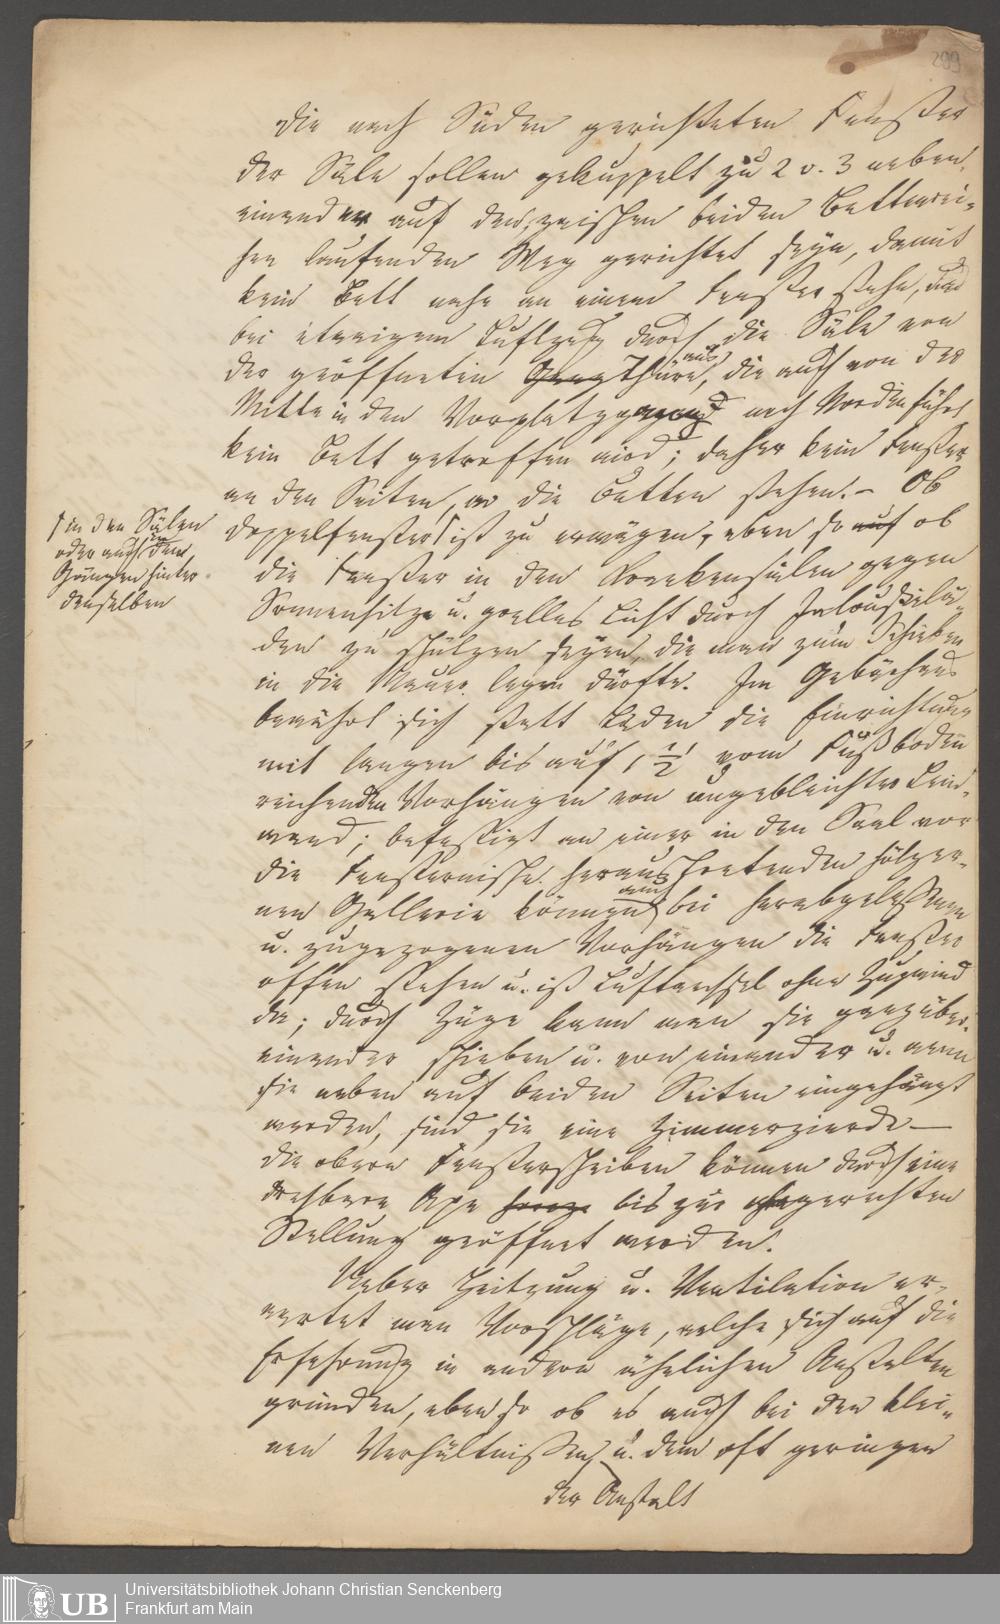 299
Die nach Süden gerichteten Fenster
der Säle sollen gekuppelt zu 2 o. 3 neben-
einander auf den zwischen beiden Bettenrei-
hen laufenden Weg gerichtet seyn, damit
kein Bett nahe an einem Fenster stehe, und
bei etwaigem Luftzug durch die Säle von
der geöffneten Gang Thüre aus, die auch von der
Mitte in den Vorplatz nach Norden führt
kein Bett getroffen wird; daher kein Fenster
an den Seiten, wo die Betten stehen. – Ob
Doppelfenster ist zu erwägen, eben so auf ob
die Fenster in den Krankensälen gegen
Sonnenhitze u. grelles Licht durch Jalousielä-
den zu schützen seyen, die man zum Schieben
in die Mauer legen dürfte. Im Gebärhaus
bewährt sich statt Läden die Einrichtung
mit langen bis auf 1 1/2' vom Fußboden
reichenden Vorhängen von ungebleichter Lein-
wand; befestigt an einer in den Saal vor
die Fensternische heraustretenden hölzer-
nen Gallerie können auch bei herabgelassenen
u. zugezogenen Vorhängen die Fenster
offen stehen u. ist Luftwechsel ohne Zugwind
da; durch Züge kann man sie gegenüber-
einander schieben u. von einander u. wenn
sie neben auf beiden Seiten eingehängt
werden, sind sie eine Zimmerzierde –
Die obern Fensterscheiben können durch eine
drehbare Axe bis zur wagerechten
Stellung geöffnet werden.
Ueber Heitzung u. Ventilation er-
wartet man Vorschläge, welche sich auf die
Erfahrung in andern ähnlichen Anstalten
gründen, eben so ob es auch bei den klei-
nen Verhältnissen u. dem oft geringen
der Anstalt
in den Sälen
oder auch in den
Gängen hinter
denselben
UB
Universitätsbibliothek Johann Christian Senckenberg
Frankfurt am Main